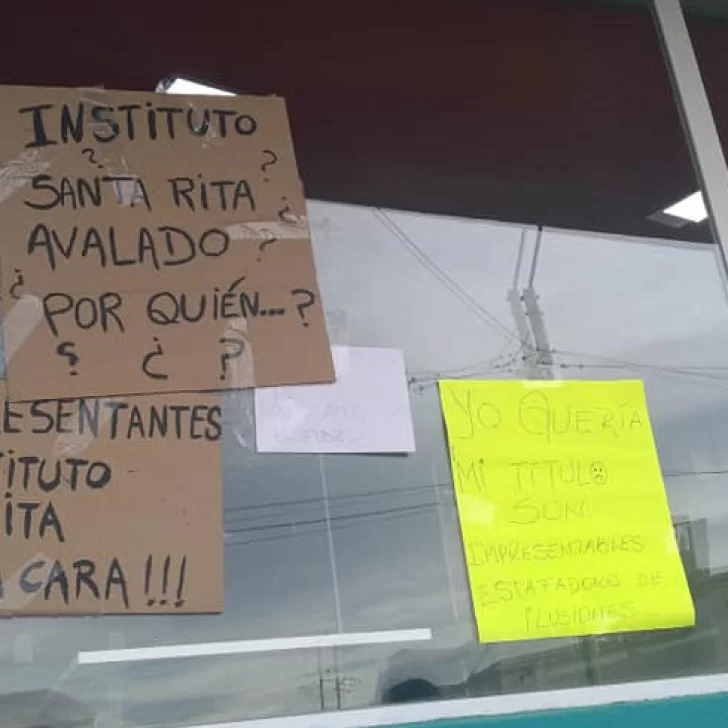 INSTITUTO
? ?
SANTA RITA ¿
AVALADO ?
¿ POR QUIÉN...?
? ¿ ?
ESENTANTES
ITUTO
ITA
CARA!!!
YO QUERÍA
MI TITULO
SON
IMPRESENTABLES
ESTAFADORES DE
ILUSIONES